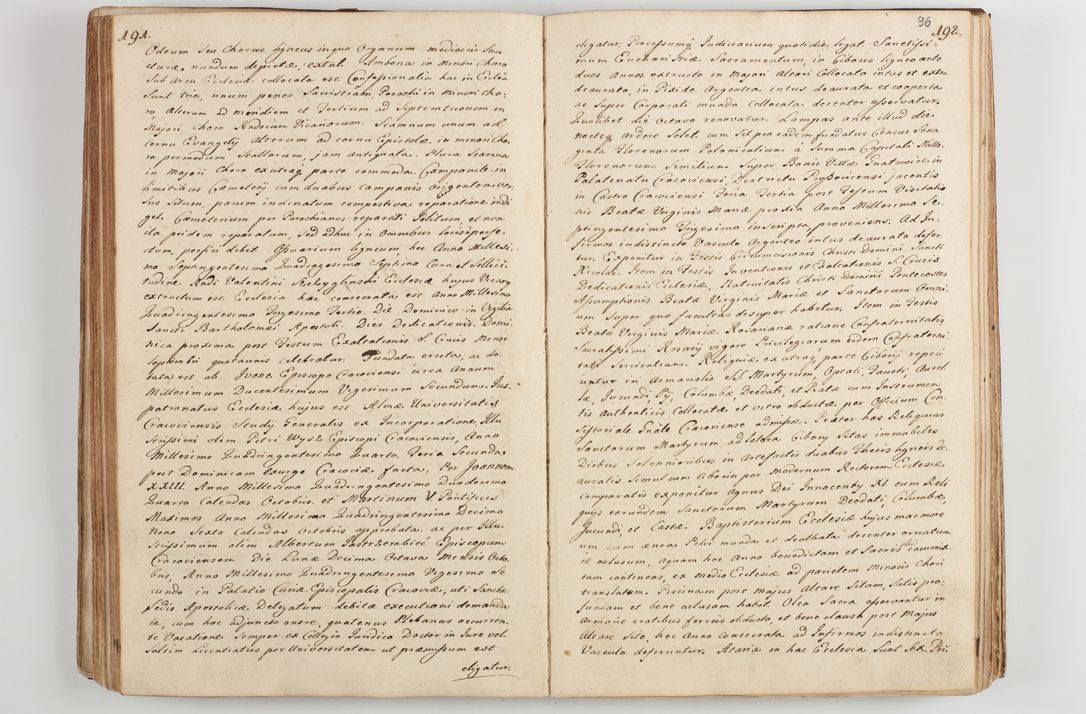 191.
Odeum seu Chorus ligneus in quo Organum mediocris stru
cturæ nundum depictæ, extat. Ambona in minori Choro
sub Arcu Ecclesiæ collocata est. Confessionalia hac in Ecclesia
sunt tria, unum penes Sacristiam Parochi in minori Cho-
ro, alterum ad meridiem et Tertium ad Septentrionem in
Majori Choro Rndorum Vicariorum. Scamnum unum ad
Cornu Evangelij alterum ad cornu Epistolæ in minori Cho
ro per modum Stallorum, jam antiquata. Plura Scamna
in Majori Choro ex utraq parte commoda. Campanile in
limitibus Cæmeterij cum duabus campanis Orientem ver
sus situm, parum inclinatum tempestiva reparatione indi
get. Cæmeterium per Parochianos reparari solitum, et non
ita pridem reparatum, sed adhuc in Omnibus locis imperfe-
ctum, perfici debet. Ossuarium ligneum, hoc Anno Millesi-
mo Septingentesimo Quadragesimo Septimo Cura et Sollici
tudine Rndi Valentini Ecclesiæ hujus Vicarij
extructum est. Ecclesia hæc consecrata est Anno Millesimo
Quadringentesimo Trigesimo Tertio. Die Dominico in Vigilia
Sancti Bartholomæi Apostoli. Dies Dedicationis Domi
nica proxima post Festum Exaltationis S. Crucis Mense
Septembri quotannis celebratur. Fundata erecta, ac do-
tata est ab Ivone Episcopo Cracoviensi circa Annum
Millesimum Ducentesimum Vigesimum Secundum. Jus
patronatus Ecclesiæ hujus est Almæ Universitatis
Cracoviensis Studij Generalis ex Incorporatione Illu
strissimi olim Petri Wysz Episcopi Cracoviensis, Anno
Millesimo Quadringentesimo Quarto. Feria Secunda
post Dominicam Exurge Cracoviæ facta, Per Joannem
XXIII. Anno Millesimo Quadringentesimo Duodecimo
Quarto Calendas Octobris et Martinum V. Pontifices
Maximos Anno Millesimo Quadringentesimo Decimo
Nono Sexto Calendas Octobris approbata, ac per Illu
strissimum olim Albertum Jastrzembiec Episcopum
Cracoviensem Die Lunæ Decima Octava Mensis Octo
bris, Anno Millesimo Quadringentesimo Vigesimo Se
cundo in Palatio Curiæ Episcopalis Cracoviæ, uti Sanctæ
Sedis Apostolicæ Delegatum debitæ executioni demanda
ta, cum hoc adjuncto onere, quatenus Plebanus occurren
te Vacatione Semper ex Collegio Juridico Doctor in Jure vel
Saltim Licentiatus per Universitatem ut præmissum est
eligatur.
96
192.
eligatur, Processumq Judiciarium quotidie legat. Sanctissi-
mum Eucharistiæ Sacramentum, in Ciborio ligneo ante
duos Annos extructo in Majori Altari Collocato intus et extra
deaurato, in Pixide Argentea intus deaurata et cooperta
ac Super Corporali mundo Collocata decenter asservatur.
Quolibet die Octavo renovatur. Lampas ante illud die
nocteq ardere Solet, cum sit pro eadem fundatus Census Sexa
ginta Florenorum Polonicalium à Summa Capitali Mille
Florenorum Similium Super Bonis Villæ Gnatowice in
Palatinatu Cracoviensi Districtu Proszovicensi jacentis
in Castro Cracoviensi Feria Tertia post Festum Visitatio
nis Beatæ Virginis Mariæ prodia Anno Millesimo Se
ptingentesimo Trigesimo inscripta, proveniens. Ad In-
firmos indistincto Vasculo Argenteo intus deaurato defer
tur. Exponitur in Festis Circumcisionis Christi Domini Sancti
Nicolai. Item in Festis Inventionis et Exaltationis S. Crucis
Dedicationis Ecclesiæ, Nativitatis Christi Domini Pentecostes
Assumptionis Beatæ Virginis Mariæ et Sanctorum Omni
um Super quo facultas desuper habetur. Item in Festis
Beatæ Virginis Mariæ Rosarianæ ratione Confraternitatis
Sacratissimi Rosarij vigore Privilegiorum eidem Confraterni
tati Servientium. Reliquiæ ex utraq parte Ciborij reperi
untur in Armariolis SS. Martyrum, Optati, Fausti, Aurel
iæ, Jucundi, Pij, Columbæ, Deodati, et Pratæ cum Instrumen
tis Authenticis Collocatæ et vitro obductæ per Officium Con
sistoriale Gnale Cracoviense admissæ. Præter has Reliquias
Sanctorum Martyrum ad latera Ciborij Sitas immobiles
Diebus Solennioribus in Artefactis duabus Thecis ligneis de
auratis Simul cum Ciborio per modernum Rectorem Ecclesiæ,
Comparatis exponitur Agnus Dei Innocentij XI cum Reli
quijs eorundem Sanctorum Martyrum Deodati, Columbæ,
Jucundi, et Castæ. Baptisterium Ecclesiæ hujus marmore
um, cum ænea Pelvi munda et dealbata decenter ornatum
et oclusum, Aquam hoc Anno benedictam et Sacris commix
tam continens, ex medio Ecclesiæ ad parietem Minoris Chori
translatum. Piscinam post majus Altare Sitam, Satis pro-
fundam et bene oclusam habet. Olea Sacra asservantur in
Armario cratibus ferreis obducto, et bene clauso post Majus
Altare Sito, hoc Anno Consecrata ad Infirmos indistincto
Vasculo deferuntur. Altaria in hac Ecclesia Sunt Sex. Pri-